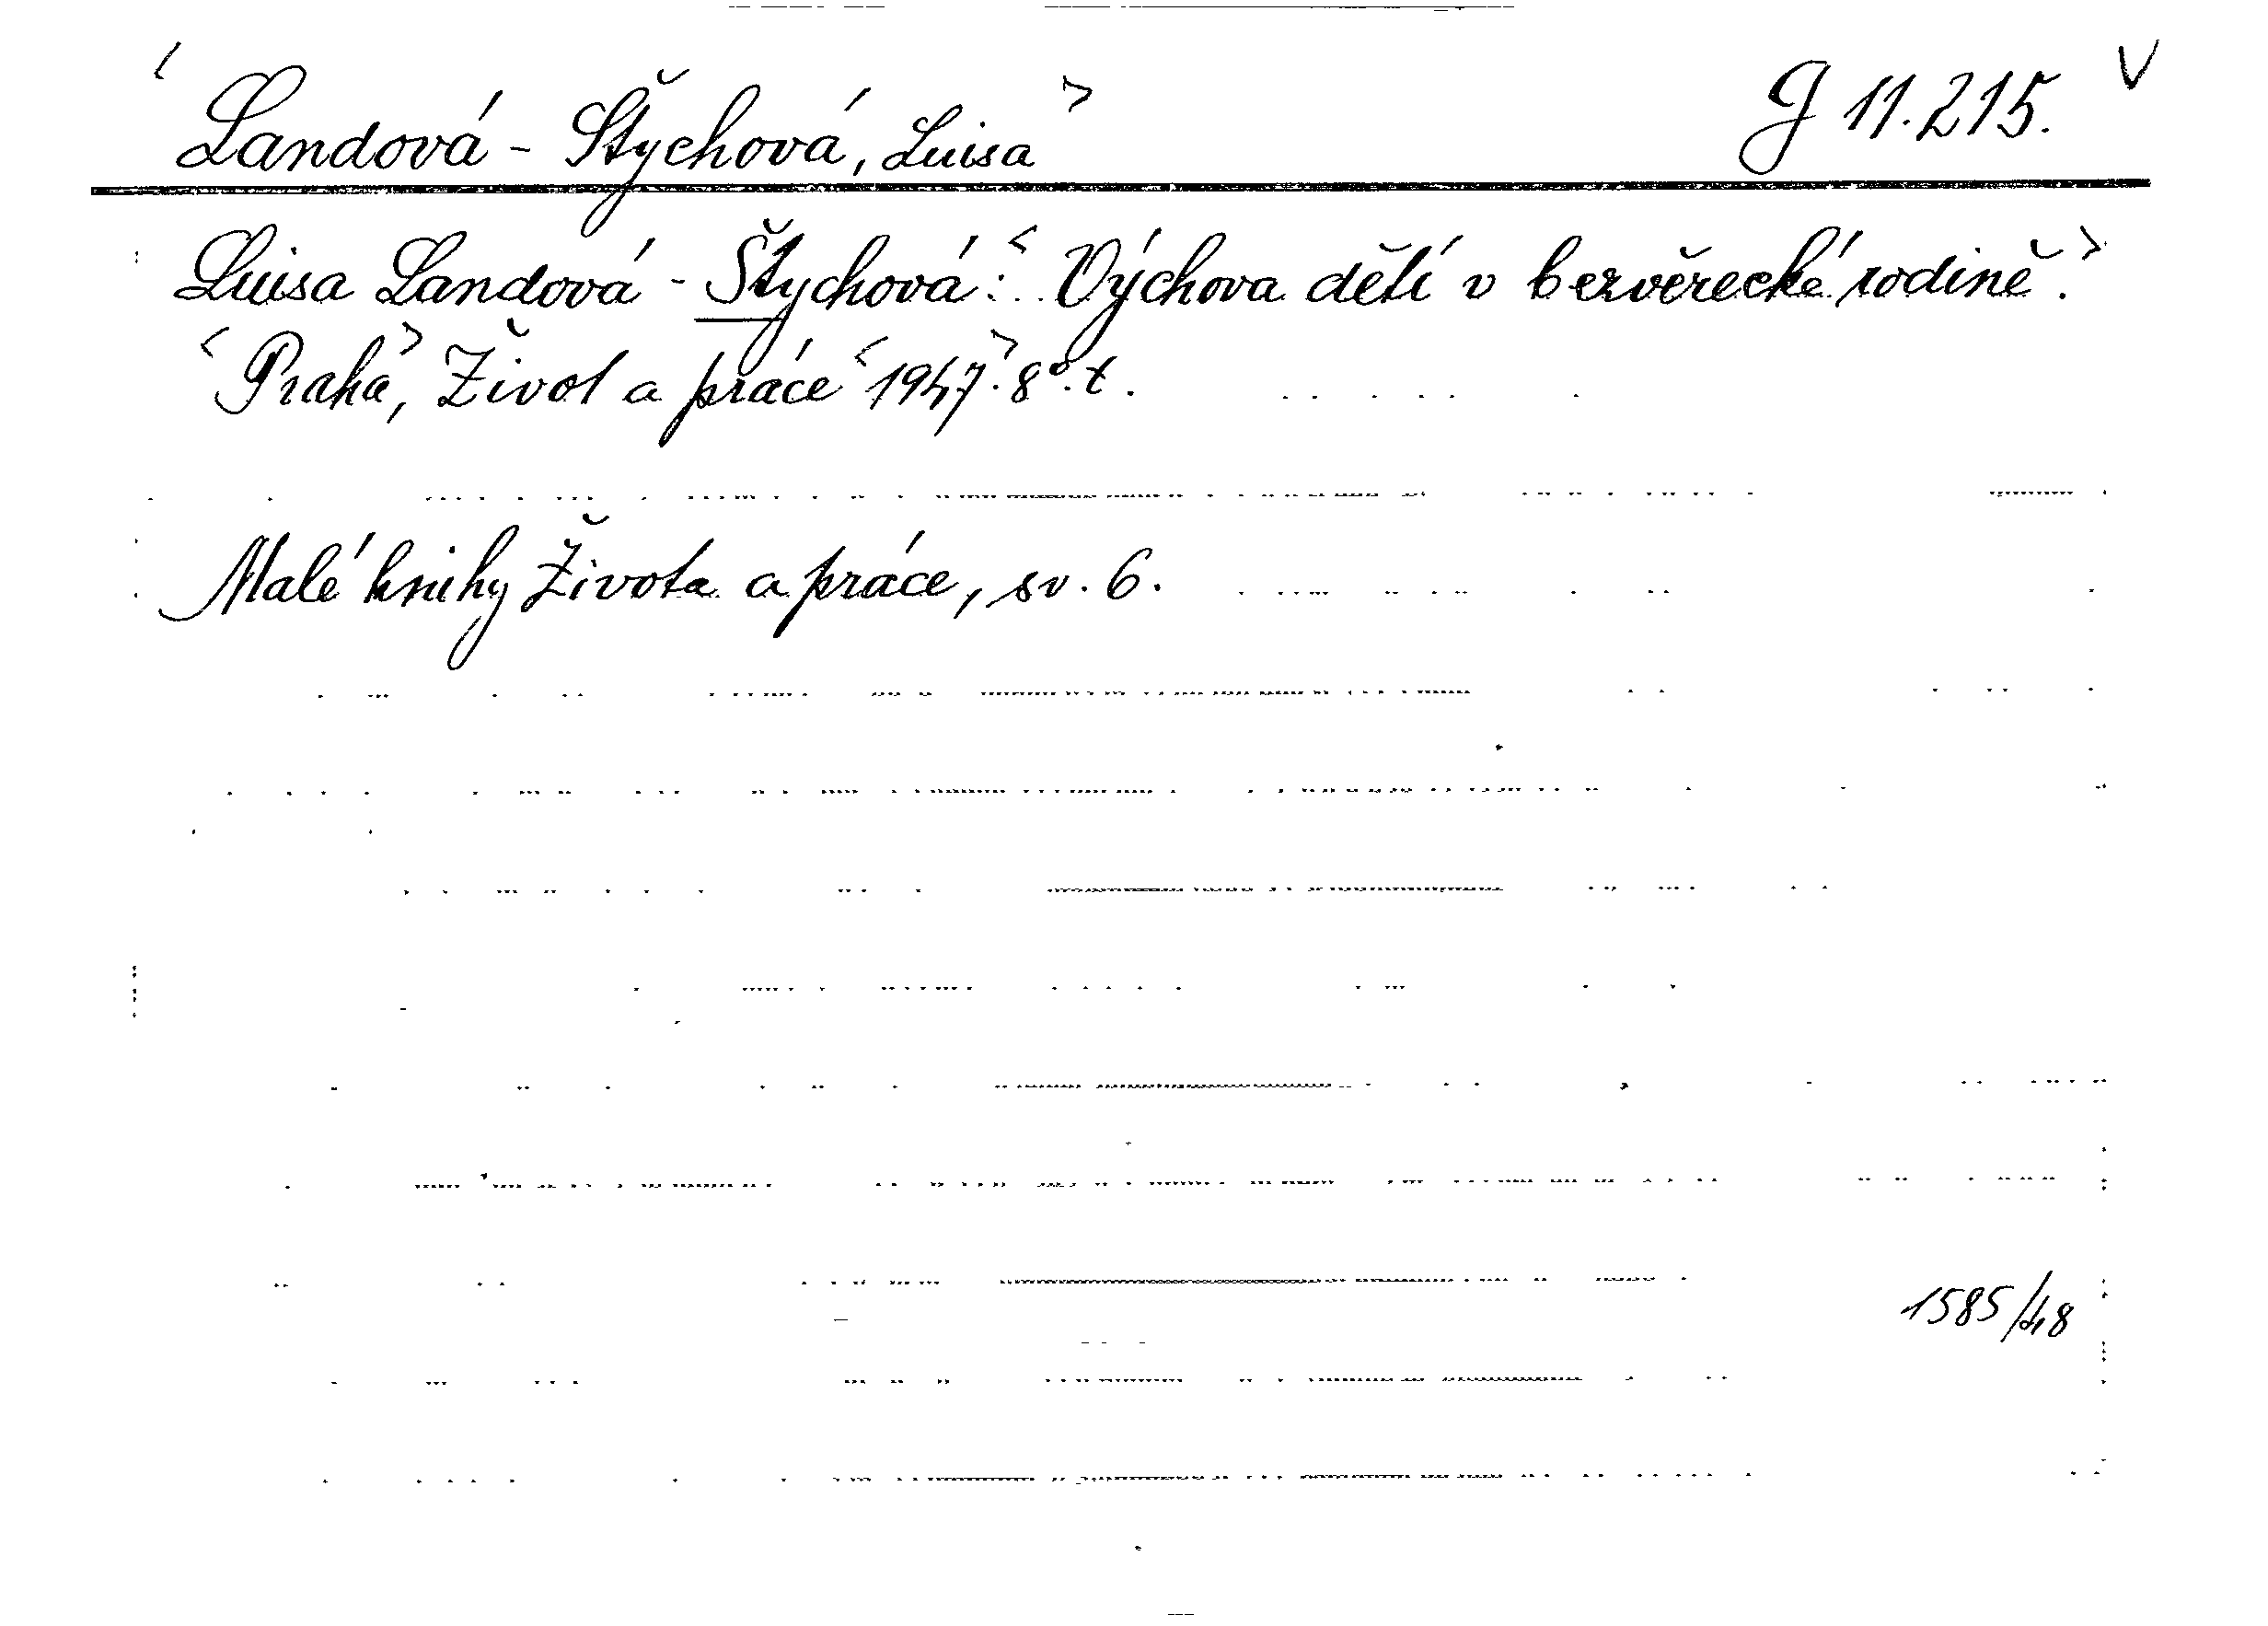 <Landová-Štychová, Luisa> J 11.215. V
Luisa Landová-Štychová: <Výchova dětí v bezvěrecké rodině.>
<Praha>, Život a práce <1947>. 8°. t.
Malé knihy Života a práce, sv. 6.
1585/48